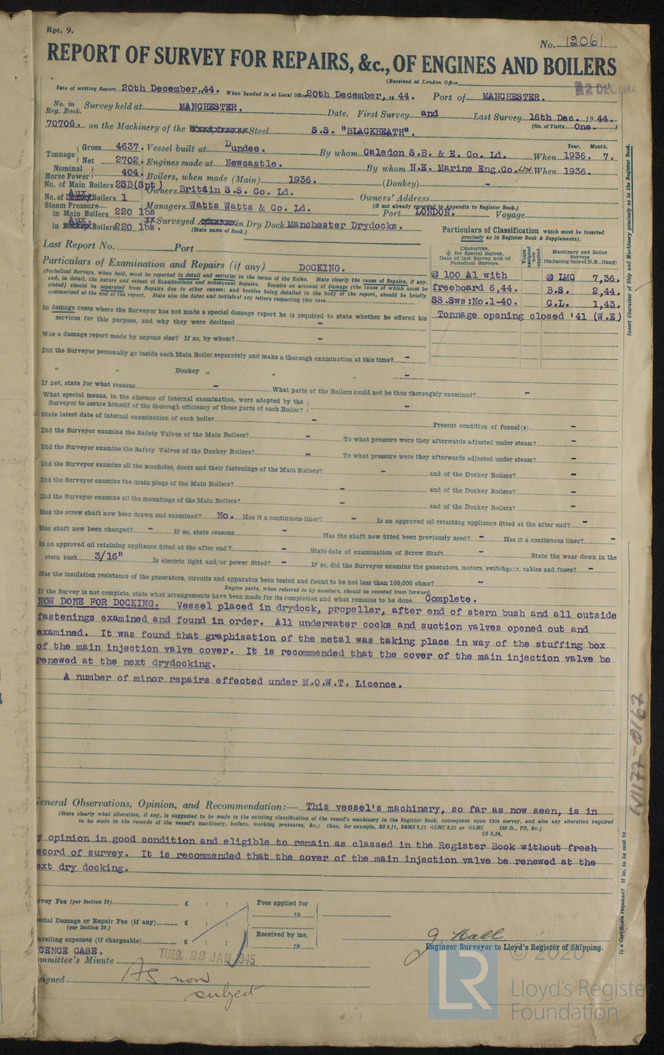 Rpt. 9.
No. 12061
REPORT OF SURVEY FOR REPAIRS, &c., OF ENGINES AND BOILERS
(Received at London Office
22 DEC
Date of writing Report 20th December, 44. When handed in at Local Office 20th December, 19 44. Port of MANCHESTER.
No. in Reg. Book. Survey held at MANCHESTER. Date. First Survey and Last Survey 16th Dec. 19 44.
(No. of Visits One.
70706. on the Machinery of the Steel S.S. "BLACKHEATH".
Year. Month.
Tonnage Gross 4637. Vessel built at Dundee. By whom Caledon S.B. & E. Co. Ld. When 1936. 7.
Net 2702. Engines made at Newcastle. By whom N.E. Marine Eng.Co. When 1936.
Nominal Horse Power 404. Boilers, when made (Main) 1936. (Donkey) -
No. of Main Boilers 2SB(Spt) Owners Britain S.S. Co. Ld. Owners' Address
(if not already recorded in Appendix to Register Book.)
No. of Aux. Boilers 1
Steam Pressure in Main Boilers 220 lbs Managers Watts Watts & Co. Ld. Port LONDON. Voyage
in Aux. Boilers 220 lbs. Surveyed in Dry Dock Manchester Drydocks.
(State name of Dock.)
Particulars of Classification which must be inserted
precisely as in Register Book & Supplements).
Last Report No. Port
Particulars of Examination and Repairs (if any) DOCKING.
(Periodical Surveys, when held, must be reported in detail and seriatim in the terms of the Rules. State clearly the cause of Repairs, if any,
and, in detail, the nature and extent of Examinations and subsequent Repairs. Repairs on account of Damage (the cause of which must be
stated) should be separated from Repairs due to other causes; and besides being detailed in the body of the report, should be briefly
summarised at the end of the report. State also the dates and initials of any letters respecting this case.
CHARACTER.
for Special Survey,
Date of last Survey and of
Periodical Surveys.
Machinery and Boiler
Surveys
(Including dates of N.B., if any)
100 A1 with LMC 7,36.
freeboard 6,44. B.S. 2,44.
SS.Sws:No.1-40. C.L. 1,43.
Tonnage opening closed '41 (W.E)
In damage cases where the Surveyor has not made a special damage report he is required to state whether he offered his
services for this purpose, and why they were declined -
Was a damage report made by anyone else? If so, by whom? -
Did the Surveyor personally go inside each Main Boiler separately and make a thorough examination at this time? -
" " Donkey " " " -
If not, state for what reasons - What parts of the Boilers could not be thus thoroughly examined? -
What special means, in the absence of internal examination, were adopted by the
Surveyor to assure himself of the thorough efficiency of these parts of each Boiler? -
State latest date of internal examination of each boiler Present condition of funnel(s) -
Did the Surveyor examine the Safety Valves of the Main Boilers? - To what pressure were they afterwards adjusted under steam? -
Did the Surveyor examine the Safety Valves of the Donkey Boilers? - To what pressure were they afterwards adjusted under steam? -
Did the Surveyor examine all the manholes, doors and their fastenings of the Main Boilers? - and of the Donkey Boilers? -
Did the Surveyor examine the drain plugs of the Main Boilers? - and of the Donkey Boilers? -
Did the Surveyor examine all the mountings of the Main Boilers? - and of the Donkey Boilers? -
Has the screw shaft now been drawn and examined? No. Has it a continuous liner? - Is an approved oil retaining appliance fitted at the after end? -
Has shaft now been changed? - If so, state reasons - Has the shaft now fitted been previously used? - Has it a continuous liner? -
Is an approved oil retaining appliance fitted at the after end? - State date of examination of Screw Shaft State the wear down in the
stern bush 3/16" Is electric light and/or power fitted? - If so, did the Surveyor examine the generators, motors, switchgear, cables and fuses? -
Has the insulation resistance of the generators, circuits and apparatus been tested and found to be not less than 100,000 ohms? -
Engine parts, when referred to by numbers, should be counted from forward.
If the Survey is not complete, state what arrangements have been made for its completion and what remains to be done Complete.
NOW DONE FOR DOCKING. Vessel placed in drydock, propeller, after end of stern bush and all outside
fastenings examined and found in order. All underwater cocks and suction valves opened out and
examined. It was found that graphisation of the metal was taking place in way of the stuffing box
of the main injection valve cover. It is recommended that the cover of the main injection valve be
renewed at the next drydocking.
A number of minor repairs effected under M.O.W.T. Licence.
General Observations, Opinion, and Recommendation:— This vessel's machinery, so far as now seen, is in
(State clearly what alteration, if any, is suggested to be made in the existing classification of the vessel's machinery in the Register Book, consequent upon this survey, and also any alteration required
to be made in the records of the vessel's machinery, boilers, working pressures, &c.; thus, for example, BS 9,11, B&MS 9,11 LMC 9,11 or LMC 140 lb., FD, &c.)
CS 3,34.
y opinion in good condition and eligible to remain as classed in the Register Book without fresh
ecord of survey. It is recommended that the cover of the main injection valve be renewed at the
ext dry docking.
rvey Fee (per Section 29) £ : : Fees applied for
19
ecial Damage or Repair Fee (if any) £ : :
(per Section 29.)
Received by me,
velling expenses (if chargeable) £ : : 19
CENCE CASE.
TUES. 23 JAN 1945
ommittee's Minute
signed As now
subject
J Hall
Engineer Surveyor to Lloyd's Register of Shipping.
Insert Character of Ship and Machinery precisely as in the Register Book.
W1177-0167
Is a Certificate required? If so, to be sent to
© 2020
LR
Lloyd's Register
Foundation